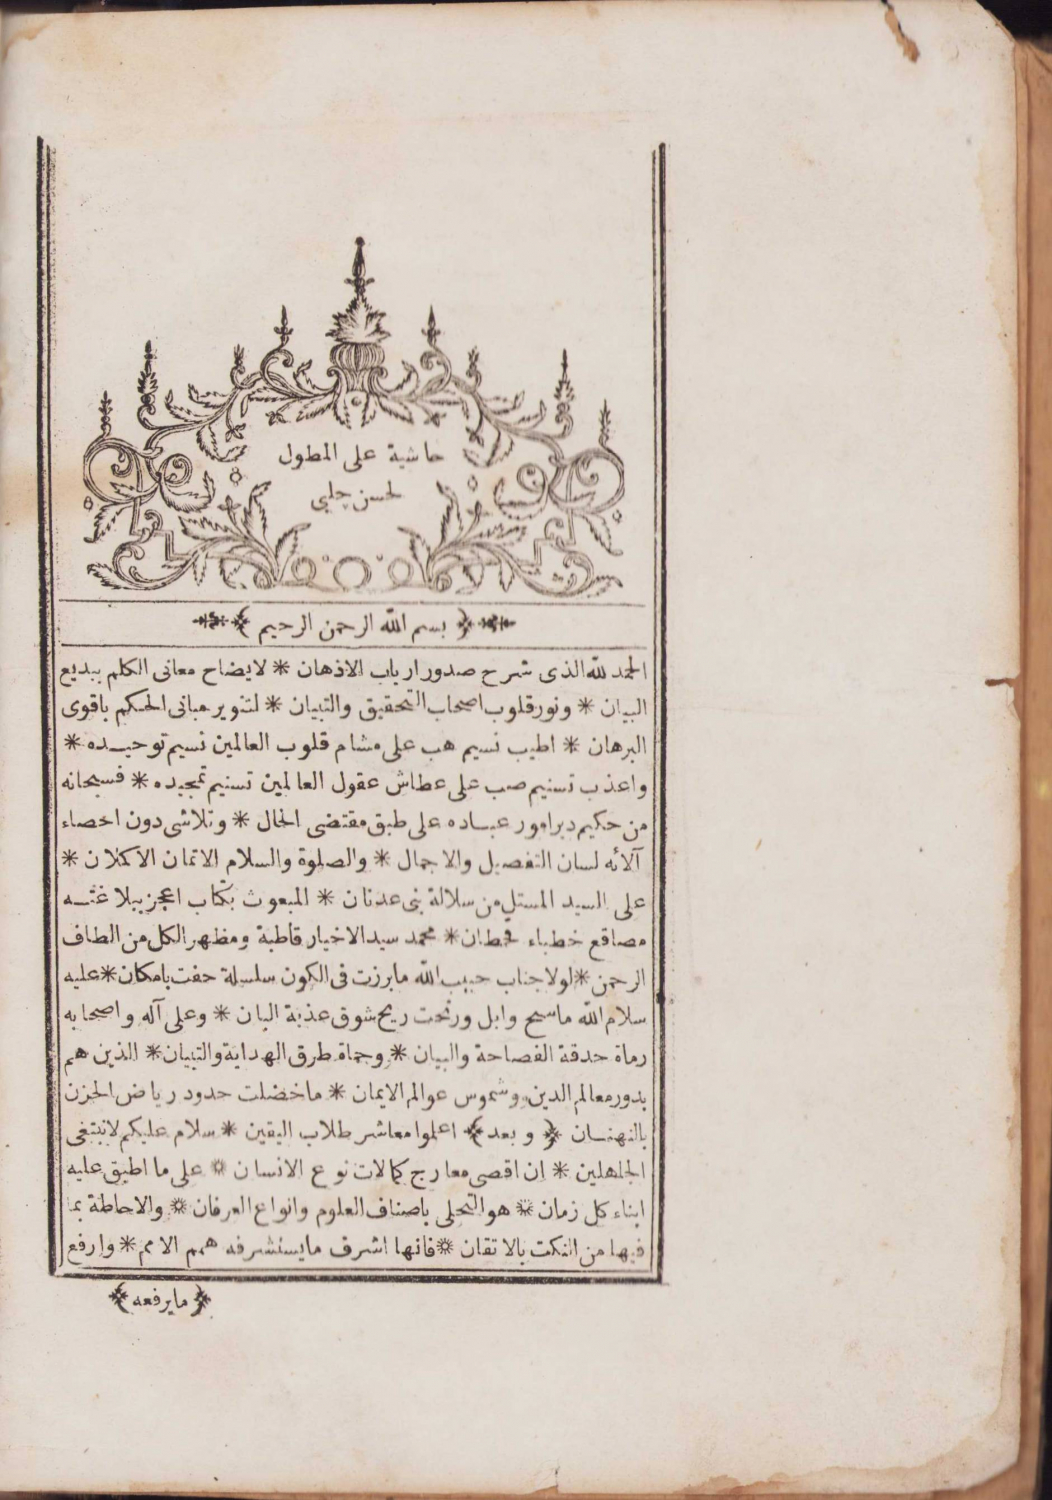 حاشية على المطول
لحسن چلبي
﴿ بسم الله الرحمن الرحيم ﴾
الحمد لله الذى شرح صدور ارباب الاذهان * لايضاح معانى الكلم ببديع
البيان * ونور قلوب اصحاب التحقيق والتبيان * لتنوير مبانى الحكم باقوى
البرهان * اطيب نسيم هب على مشام قلوب العالمين نسيم توحيده *
واعذب تسنيم صب على عطاش عقول العالمين تسنيم تمجيده * فسبحانه
من حكيم دبر امور عباده على طبق مقتضى الحال * وتلاشى دون احصاء
آلائه لسان التفصيل والاجمال * والصلوة والسلام الاتمان الاكلان *
على السيد المستل من سلالة بنى عدنان * المبعوث بكتاب اعجز ببلاغته
مصاقع خطباء قحطان * محمد سيد الاخيار قاطبة ومظهر الكل من الطاف
الرحمن * لولا جناب حبيب الله ما برزت فى الكون سلسلة حفت بامكان * عليه
سلام الله ما سح وابل ورنحت ريح شوق عذبة البان * وعلى آله واصحابه
رماة حدقة الفصاحة والبيان * وحماة طرق الهداية والتبيان * الذين هم
بدور معالم الدين وشموس عوالم الايمان * ما خضلت حدود رياض الحزن
بالتهتان ﴿ وبعد ﴾ اعلموا معاشر طلاب اليقين * سلام عليكم لا نبتغى
الجاهلين * ان اقصى معارج كمالات نوع الانسان * على ما اطبق عليه
ابناء كل زمان * هو التحلى باصناف العلوم وانواع العرفان * والاحاطة بما
فيها من النكت بالاتقان * فانها اشرف ما يستشرفه همم الامم * وارفع
﴿ ما يرفعه ﴾